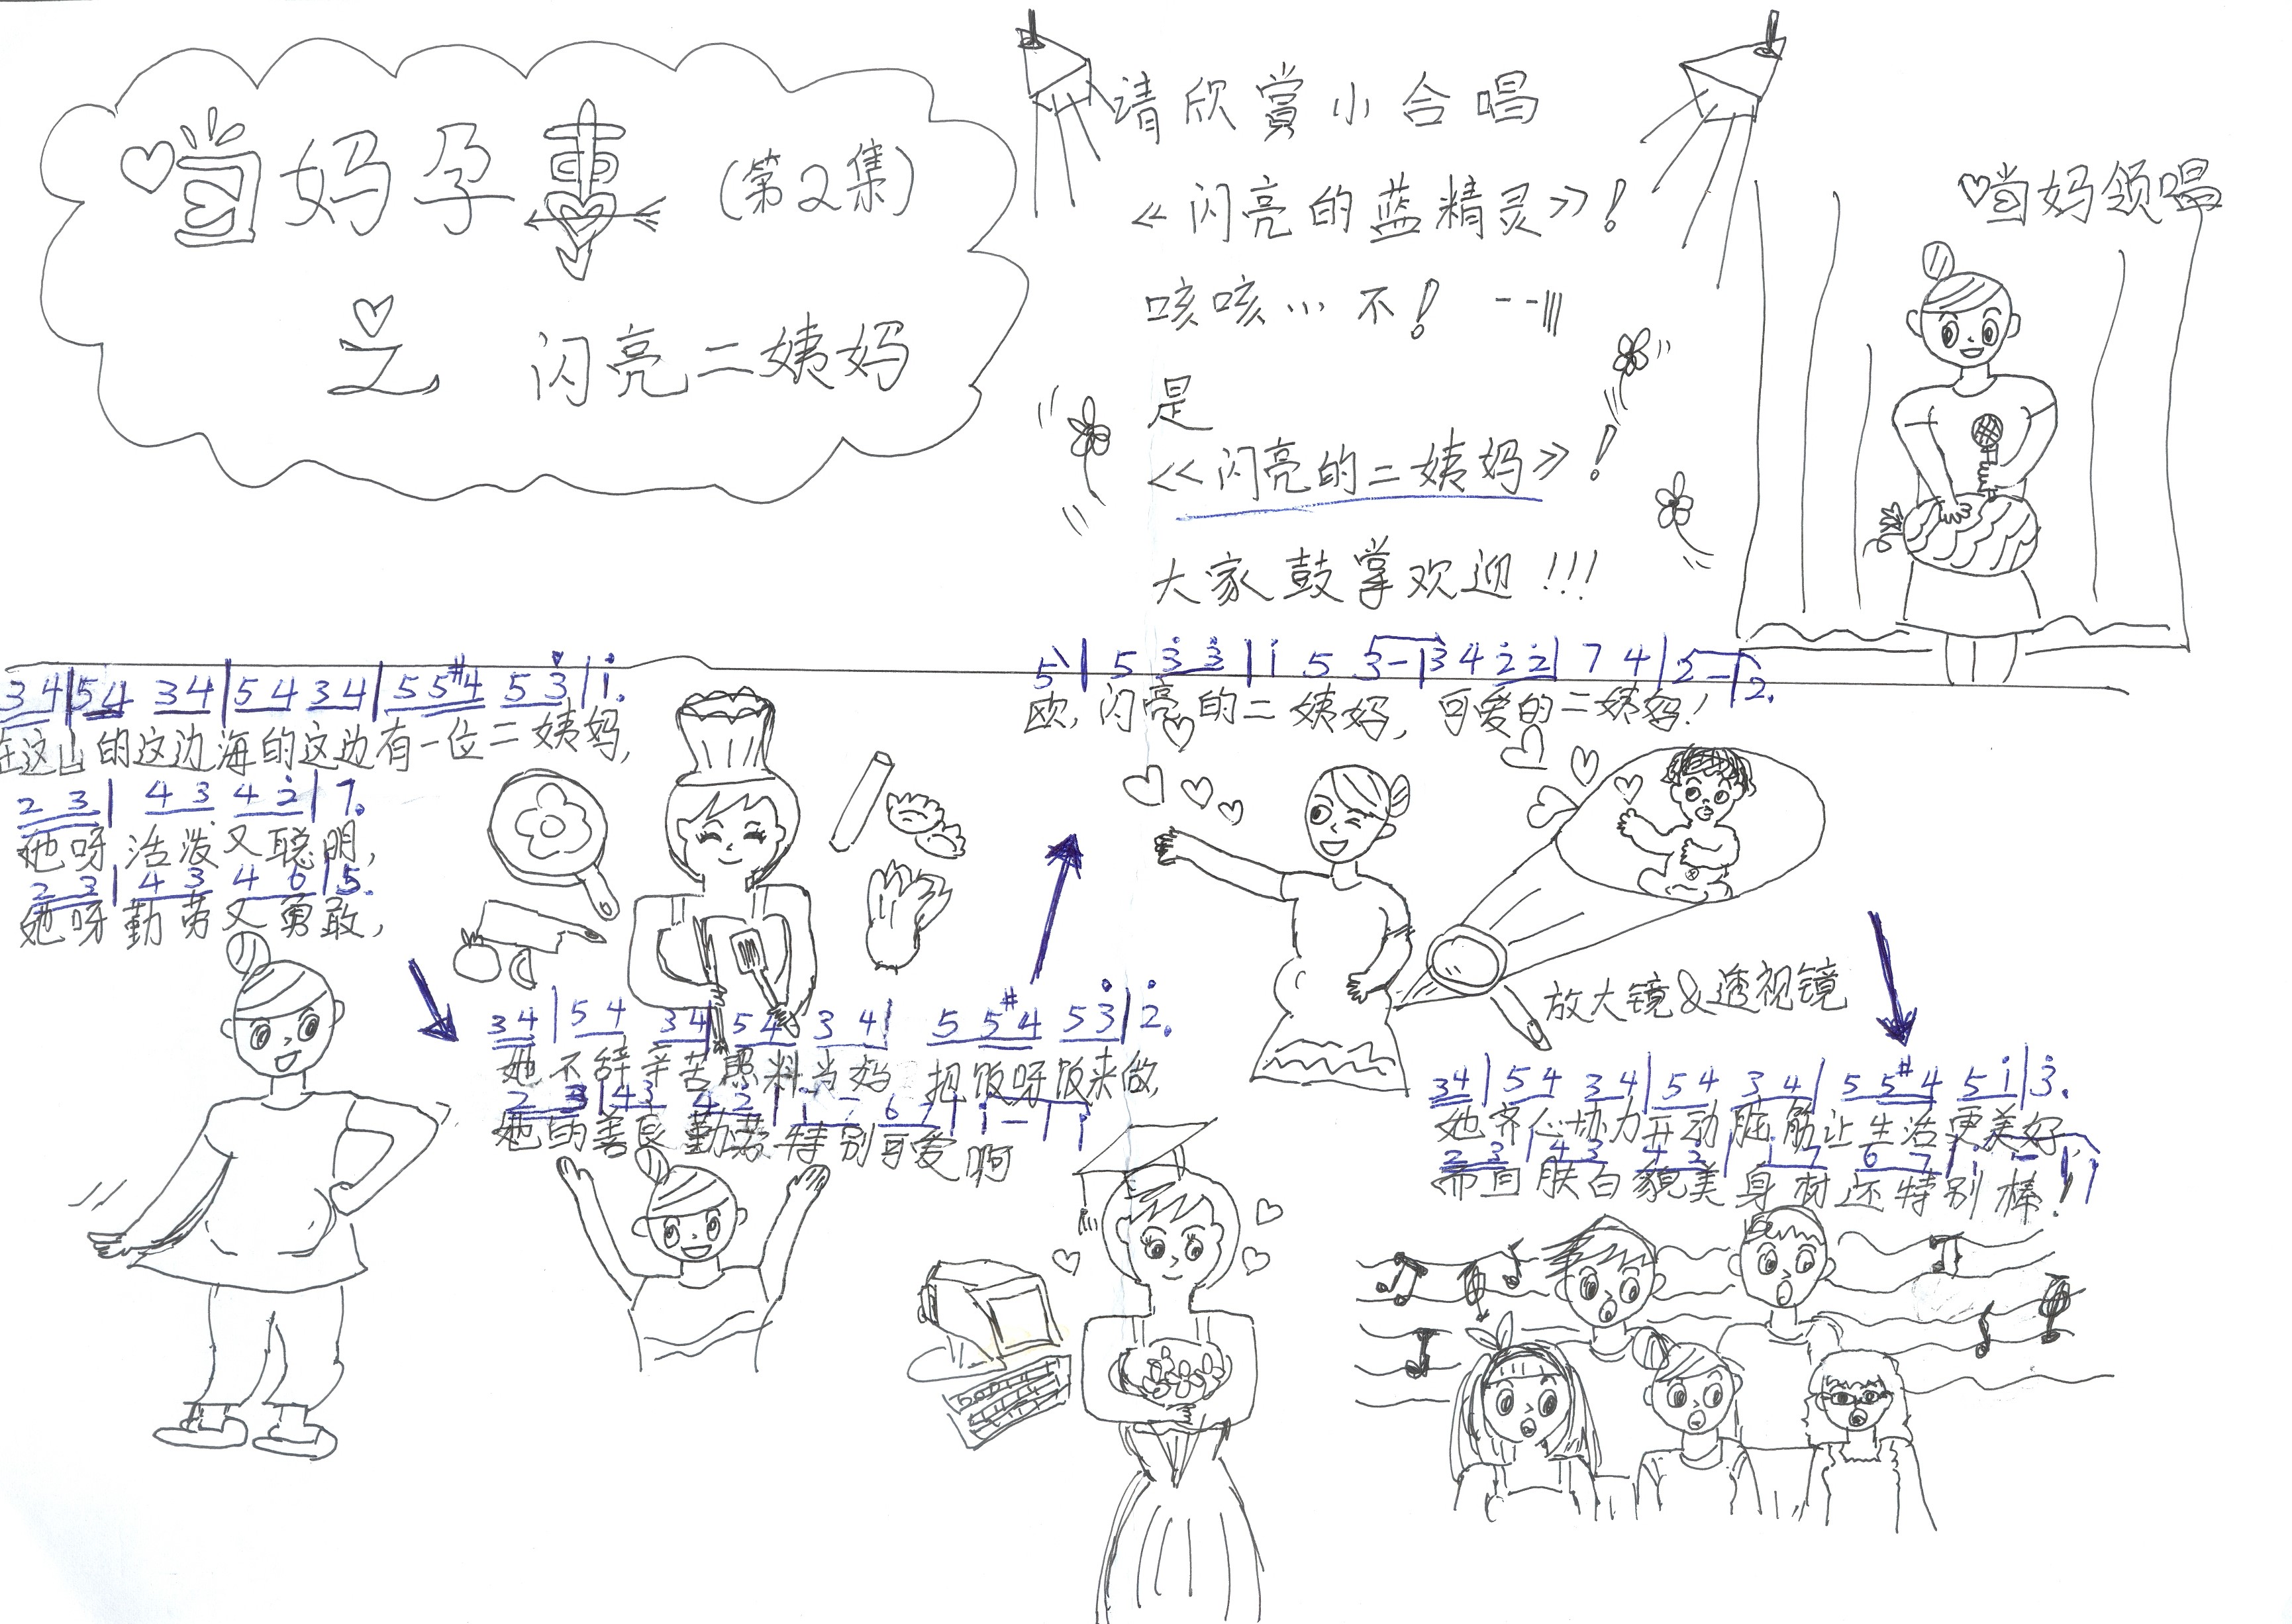 当妈孕事(第2集)
之 闪亮二姨妈
请欣赏小合唱
《闪亮的蓝精灵》!
咳咳… 不!
是
《闪亮的二姨妈》!
大家鼓掌欢迎!!!
当妈领唱
3 4|5 4 3 4|5 4 3 4|5 5 #4 5 3|1.
在这山的这边海的这边有一位二姨妈,
2 3|4 3 4 2|7.
她呀活泼又聪明,
2 3|4 3 4 6|5.
她呀勤劳又勇敢,
3 4|5 4 3 4|5 4 3 4|5 5 #4 5 3|2.
她不辞辛苦照料当妈 把饭呀饭来做,
2 3|4 3 4 2|1 7 6 7|1-|1
她的善良勤劳特别可爱啊
5|5 3 3|1 5 3-|3 4 2 2|7 4|2-|2.
欧,闪亮的二姨妈,可爱的二姨妈!
放大镜&透视镜
3 4|5 4 3 4|5 4 3 4|5 5 #4 5 1|3.
她齐心协力开动脑筋让生活更美好,
2 3|4 3 4 2|1 7 6 7|1-|1
而且肤白貌美身材还特别棒!